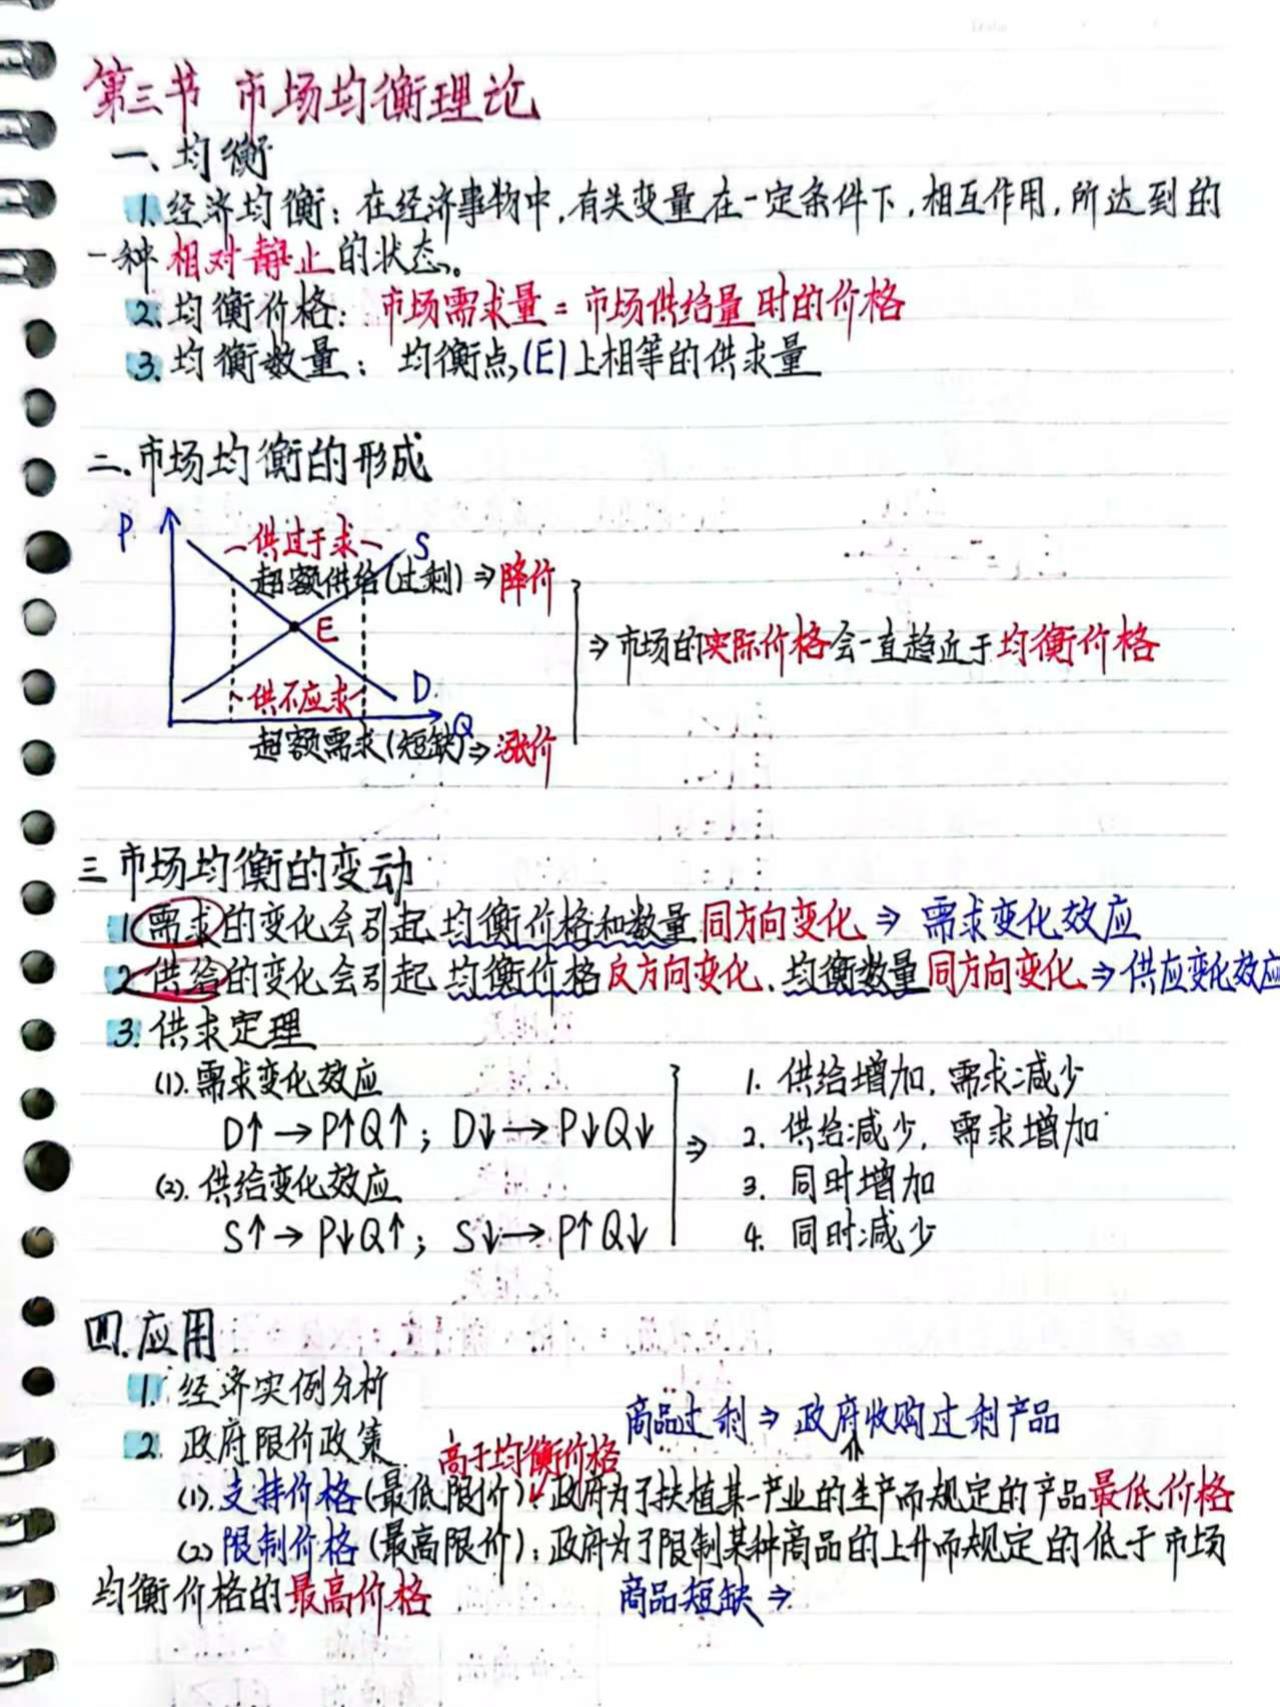 第三节 市场均衡理论
一、均衡
1.经济均衡：在经济事物中,有关变量在一定条件下,相互作用,所达到的
一种相对静止的状态。
2.均衡价格：市场需求量=市场供给量时的价格
3.均衡数量：均衡点(E)上相等的供求量
二.市场均衡的形成
P
供过于求 S
超额供给(过剩)⇒降价
E
⇒市场的实际价格会一直趋近于均衡价格
供不应求 D
Q
超额需求(短缺)⇒涨价
三市场均衡的变动
1.需求的变化会引起均衡价格和数量同方向变化⇒需求变化效应
2.供给的变化会引起均衡价格反方向变化、均衡数量同方向变化⇒供应变化效应
3.供求定理
(1).需求变化效应
D↑→P↑Q↑；D↓→P↓Q↓
(2).供给变化效应
S↑→P↓Q↑；S↓→P↑Q↓
⇒
1. 供给增加,需求减少
2. 供给减少,需求增加
3. 同时增加
4. 同时减少
四.应用
1.经济实例分析
商品过剩⇒政府收购过剩产品
2.政府限价政策
高于均衡价格
(1).支持价格(最低限价)：政府为了扶植某一产业的生产而规定的产品最低价格
(2)限制价格(最高限价)：政府为了限制某种商品的上升而规定的低于市场
均衡价格的最高价格
商品短缺⇒